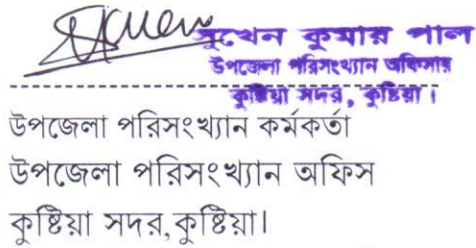 সুখেন কুমার পাল
উপজেলা পরিসংখ্যান অফিসার
কুষ্টিয়া সদর, কুষ্টিয়া।
উপজেলা পরিসংখ্যান কর্মকর্তা
উপজেলা পরিসংখ্যান অফিস
কুষ্টিয়া সদর,কুষ্টিয়া।